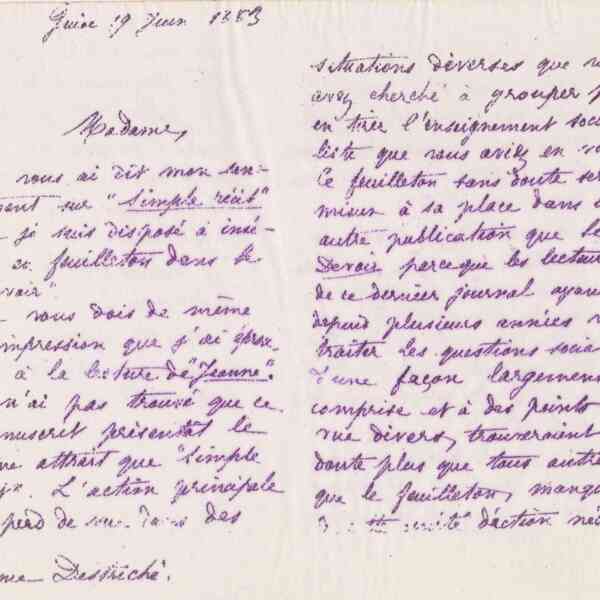 Guise 19 Juin 1883
Madame,
vous ai dit mon sen-
sur "Simple récit"
je suis disposé à insé-
feuilleton dans le
vous dois de même
impression que j'ai éprou-
à la lecture de "Jeanne".
n'ai pas trouvé que ce
présentât le
attrait que "Simple
L'action principale
perd de vue dans des
Destriché.
situations diverses que
avez cherché à grouper
en tirer l'enseignement socia-
liste que vous aviez en
Ce feuilleton sans doute
mieux à sa place dans
autre publication que le
Devoir parce que les lecteurs
de ce dernier journal ayant
depuis plusieurs années
traiter les questions socia
d'une façon largement
comprise et à des points
vue divers, trouveraient
doute plus que tous autres
que le feuilleton, manque
d'action